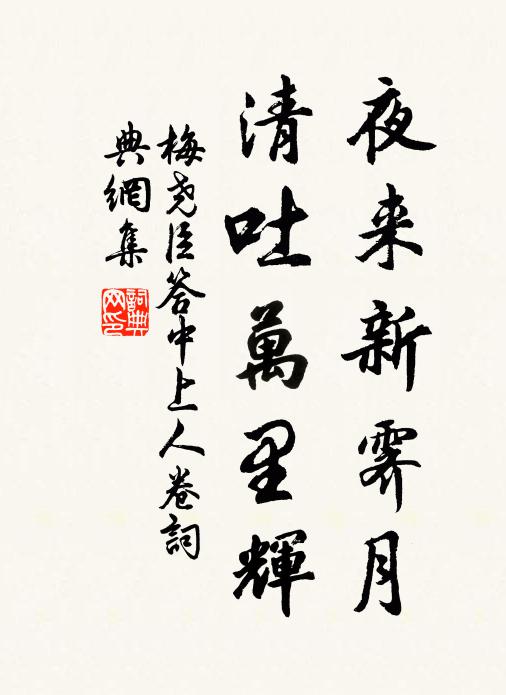 夜来新霽月
清吐萬里輝
梅尧臣答中上人卷詞
典網集
詞典
网印